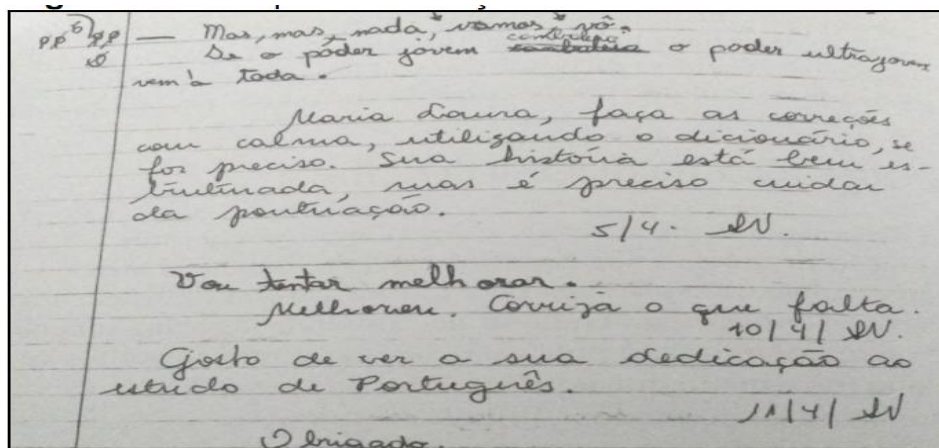 — Mas, mas, nada, vamas, vô.
cambaleia
Se o pôder jovem o poder ultrajovem
vem à toda.
Maria Laura, faça as correções
com calma, utilizando o dicionário, se
for preciso. Sua história está bem es-
truturada, mas é preciso cuidar
da pontuação.
5/4.
Vou tentar melhorar.
Melhorou. Corrija o que falta.
10/4/
Gosto de ver a sua dedicação ao
estudo de Português.
11/4/
Obrigado.